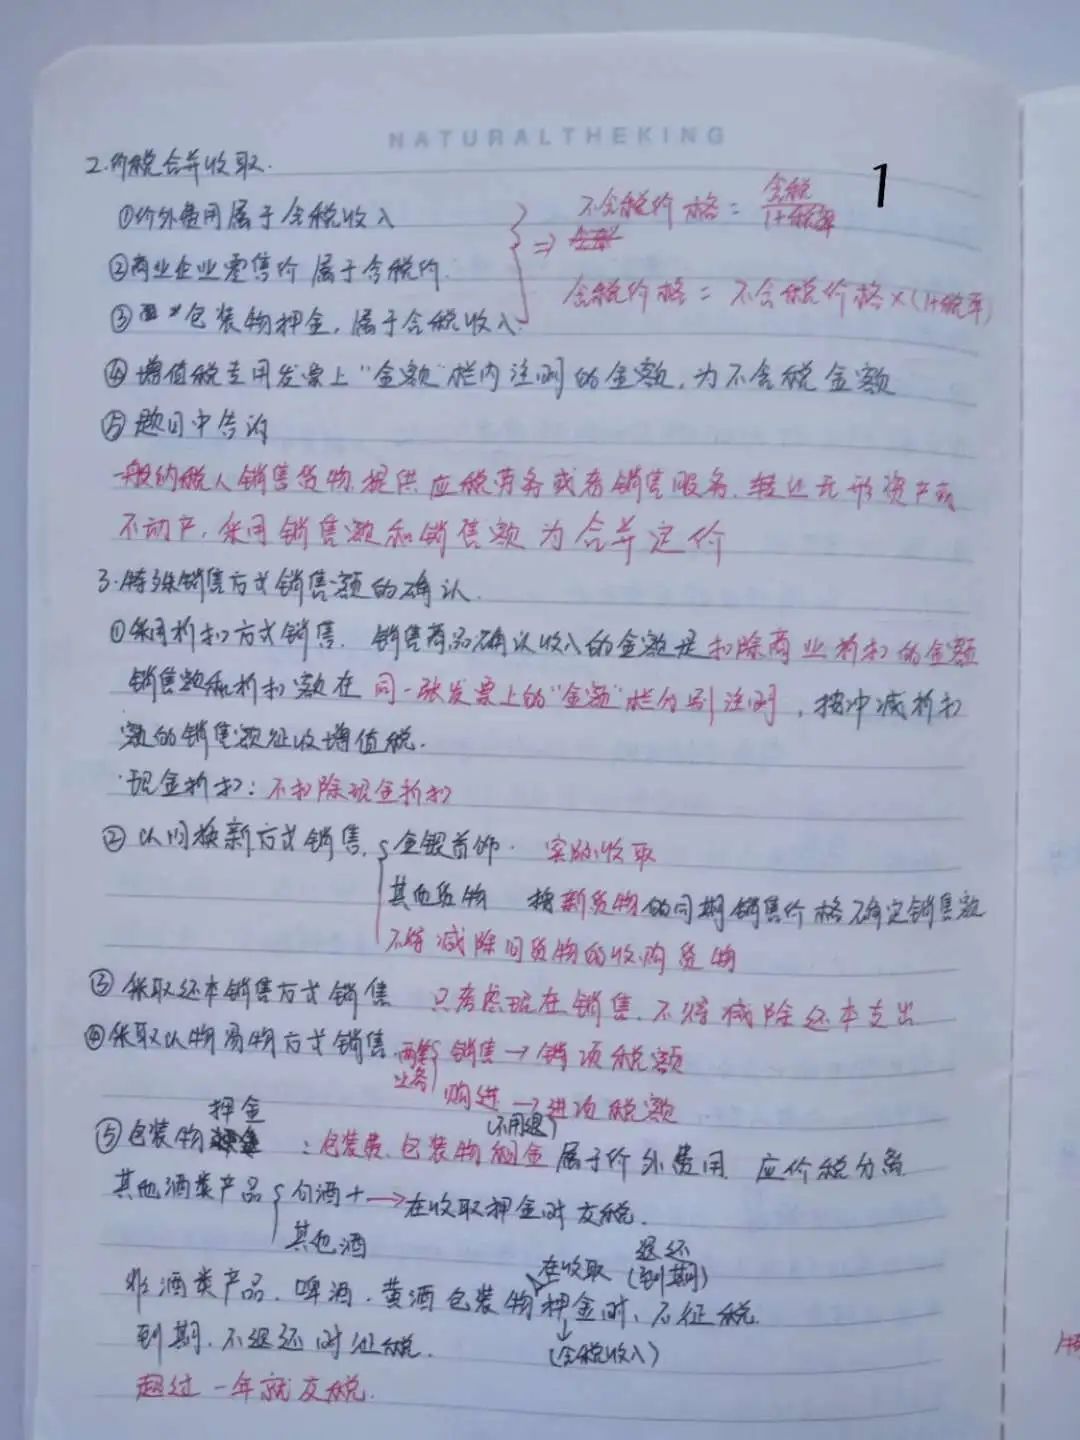 NATURALTHEKING
1
2.价税合并收取.
①价外费用属于含税收入
②商业企业零售价属于含税价.
③包装物押金,属于含税收入
} ⇒ 不含税价格 = 含税/1+税率
含税价格 = 不含税价格×(1+税率)
④增值税专用发票上"金额"栏内注明的金额,为不含税金额
⑤题目中告诉
一般纳税人销售货物,提供应税劳务或者销售服务.转让无形资产或
不动产,采用销售额和销售额为合并定价
3.特殊销售方式销售额的确认.
①采用折扣方式销售. 销售商品确认收入的金额是扣除商业折扣的金额
销售额和折扣额在同一张发票上的"金额"栏分别注明,按冲减折扣
额的销售额征收增值税.
·现金折扣:不扣除现金折扣
②以旧换新方式销售. { 金银首饰. 实际收取
其他货物 按新货物的同期销售价格确定销售额
不得减除旧货物的收购货物
③采取还本销售方式销售 只考虑现在销售.不得减除还本支出
④采取以物易物方式销售.两笔业务{ 销售→销项税额
购进→进项税额
押金
(不用退)
⑤包装物:包装费.包装物租金属于价外费用 应价税分离
其他酒类产品{ 白酒+→在收取押金时交税.
其他酒
在收取 退还
(到期)
非酒类产品.啤酒.黄酒包装物押金时,不征税.
到期.不退还时征税. (含税收入)
超过一年就交税.